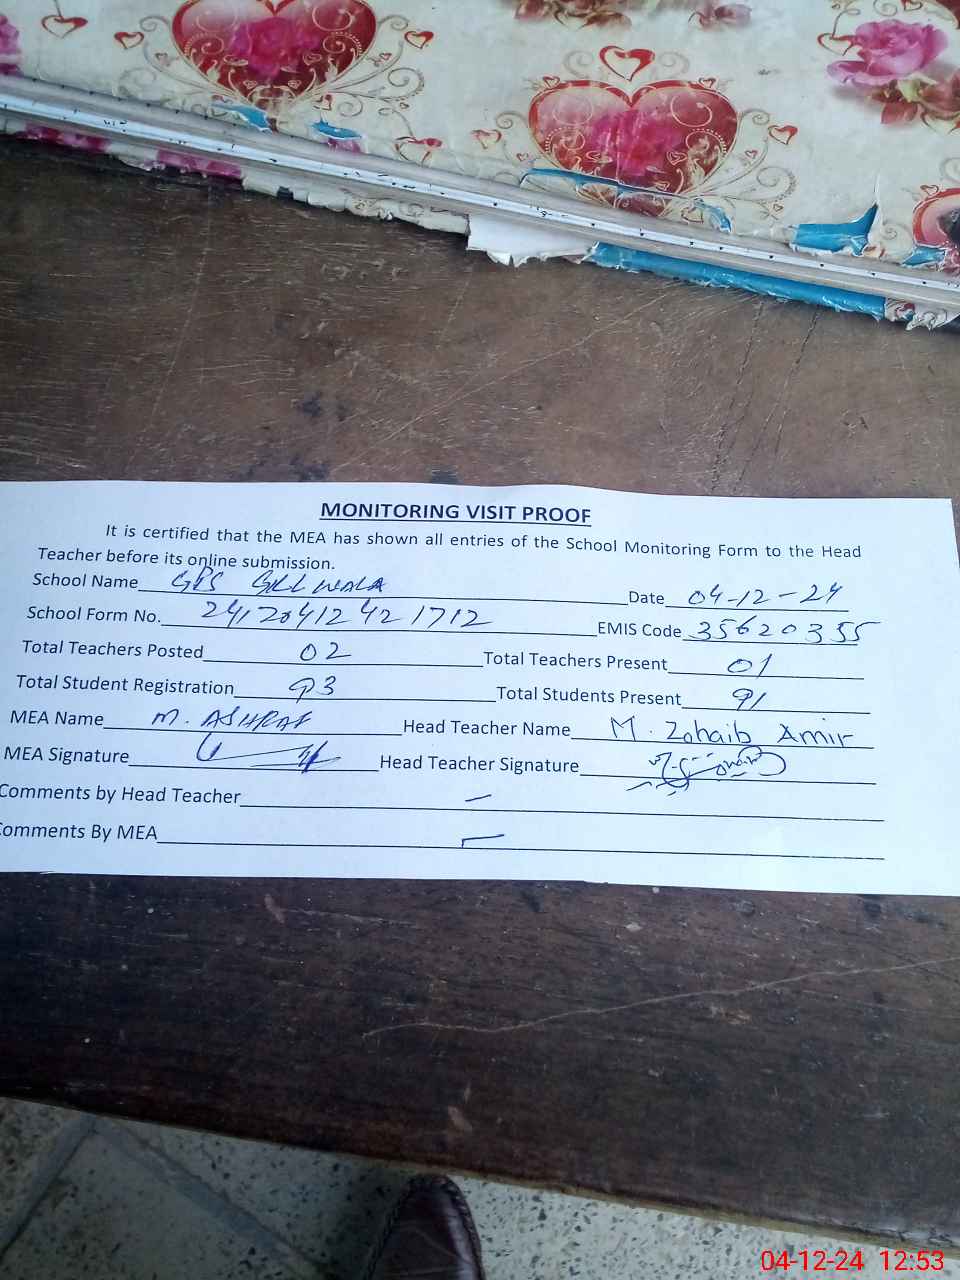 MONITORING VISIT PROOF
It is certified that the MEA has shown all entries of the School Monitoring Form to the Head
Teacher before its online submission.
School Name GPS GILL WALA Date 04-12-24
School Form No. 24120412421712 EMIS Code 35620355
Total Teachers Posted 02 Total Teachers Present 01
Total Student Registration 93 Total Students Present 91
MEA Name M. ASHRAF Head Teacher Name M. Zohaib Amir
MEA Signature Head Teacher Signature
Comments by Head Teacher –
Comments By MEA –
04-12-24 12:53